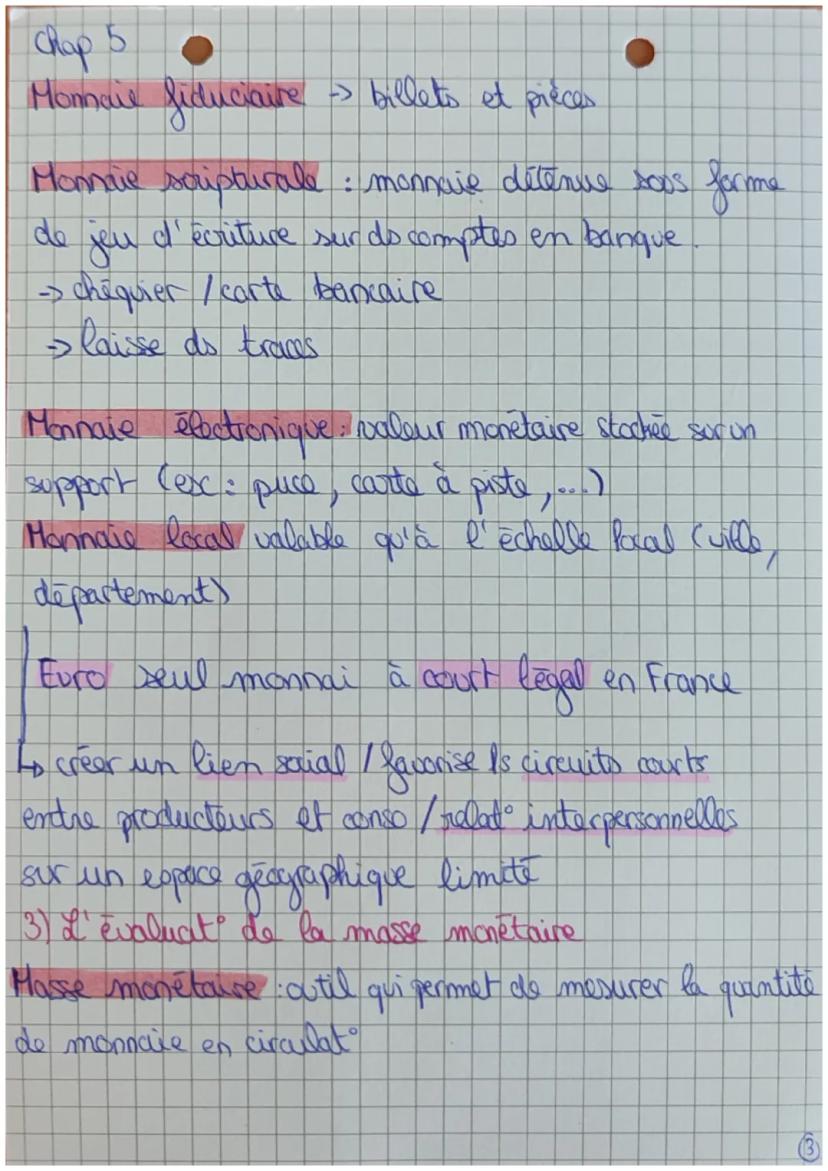 Chap 5
Monnaie fiduciaire -> billets et pièces
Monnaie scripturale : monnaie détenue sous forme
de jeu d'écriture sur ds comptes en banque.
-> chéquier / carte bancaire
-> laisse ds traces
Monnaie électronique : valeur monétaire stockée sur un
support (ex : puce, carte à piste, ...)
Monnaie local valable qu'à l'échelle local (ville,
département)
Euro seul monnai à court légal en France
↳ créer un lien social / favorise ls circuits courts
entre producteurs et conso / relat° interpersonnelles
sur un espace géographique limité
3) L'évaluat° de la masse monétaire
Masse monétaire : outil qui permet de mesurer la quantité
de monnaie en circulat°
3